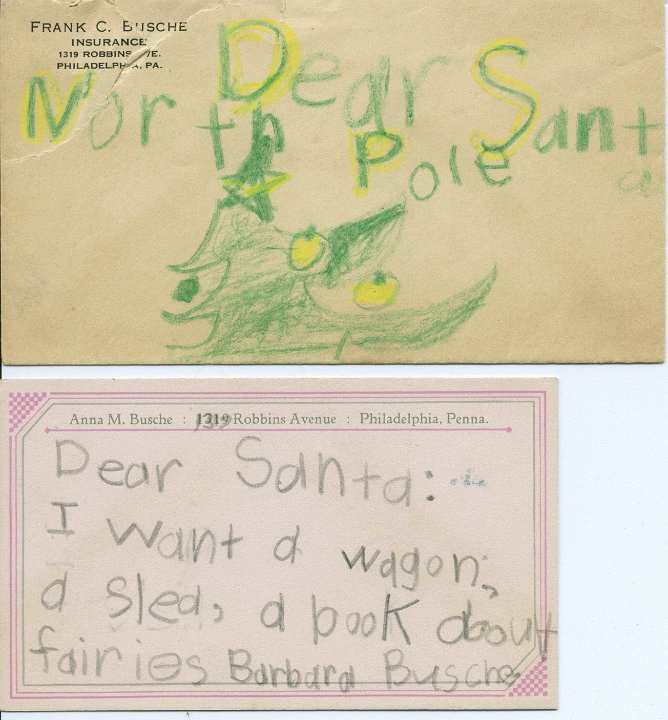 FRANK C. BUSCHE
INSURANCE
1319 ROBBINS AVE.
PHILADELPHIA, PA.
Dear Santa
North Pole
Anna M. Busche : 1319 Robbins Avenue : Philadelphia, Penna.
Dear Santa:
I want a wagon,
a sled, a book about
fairies Barbara Busche